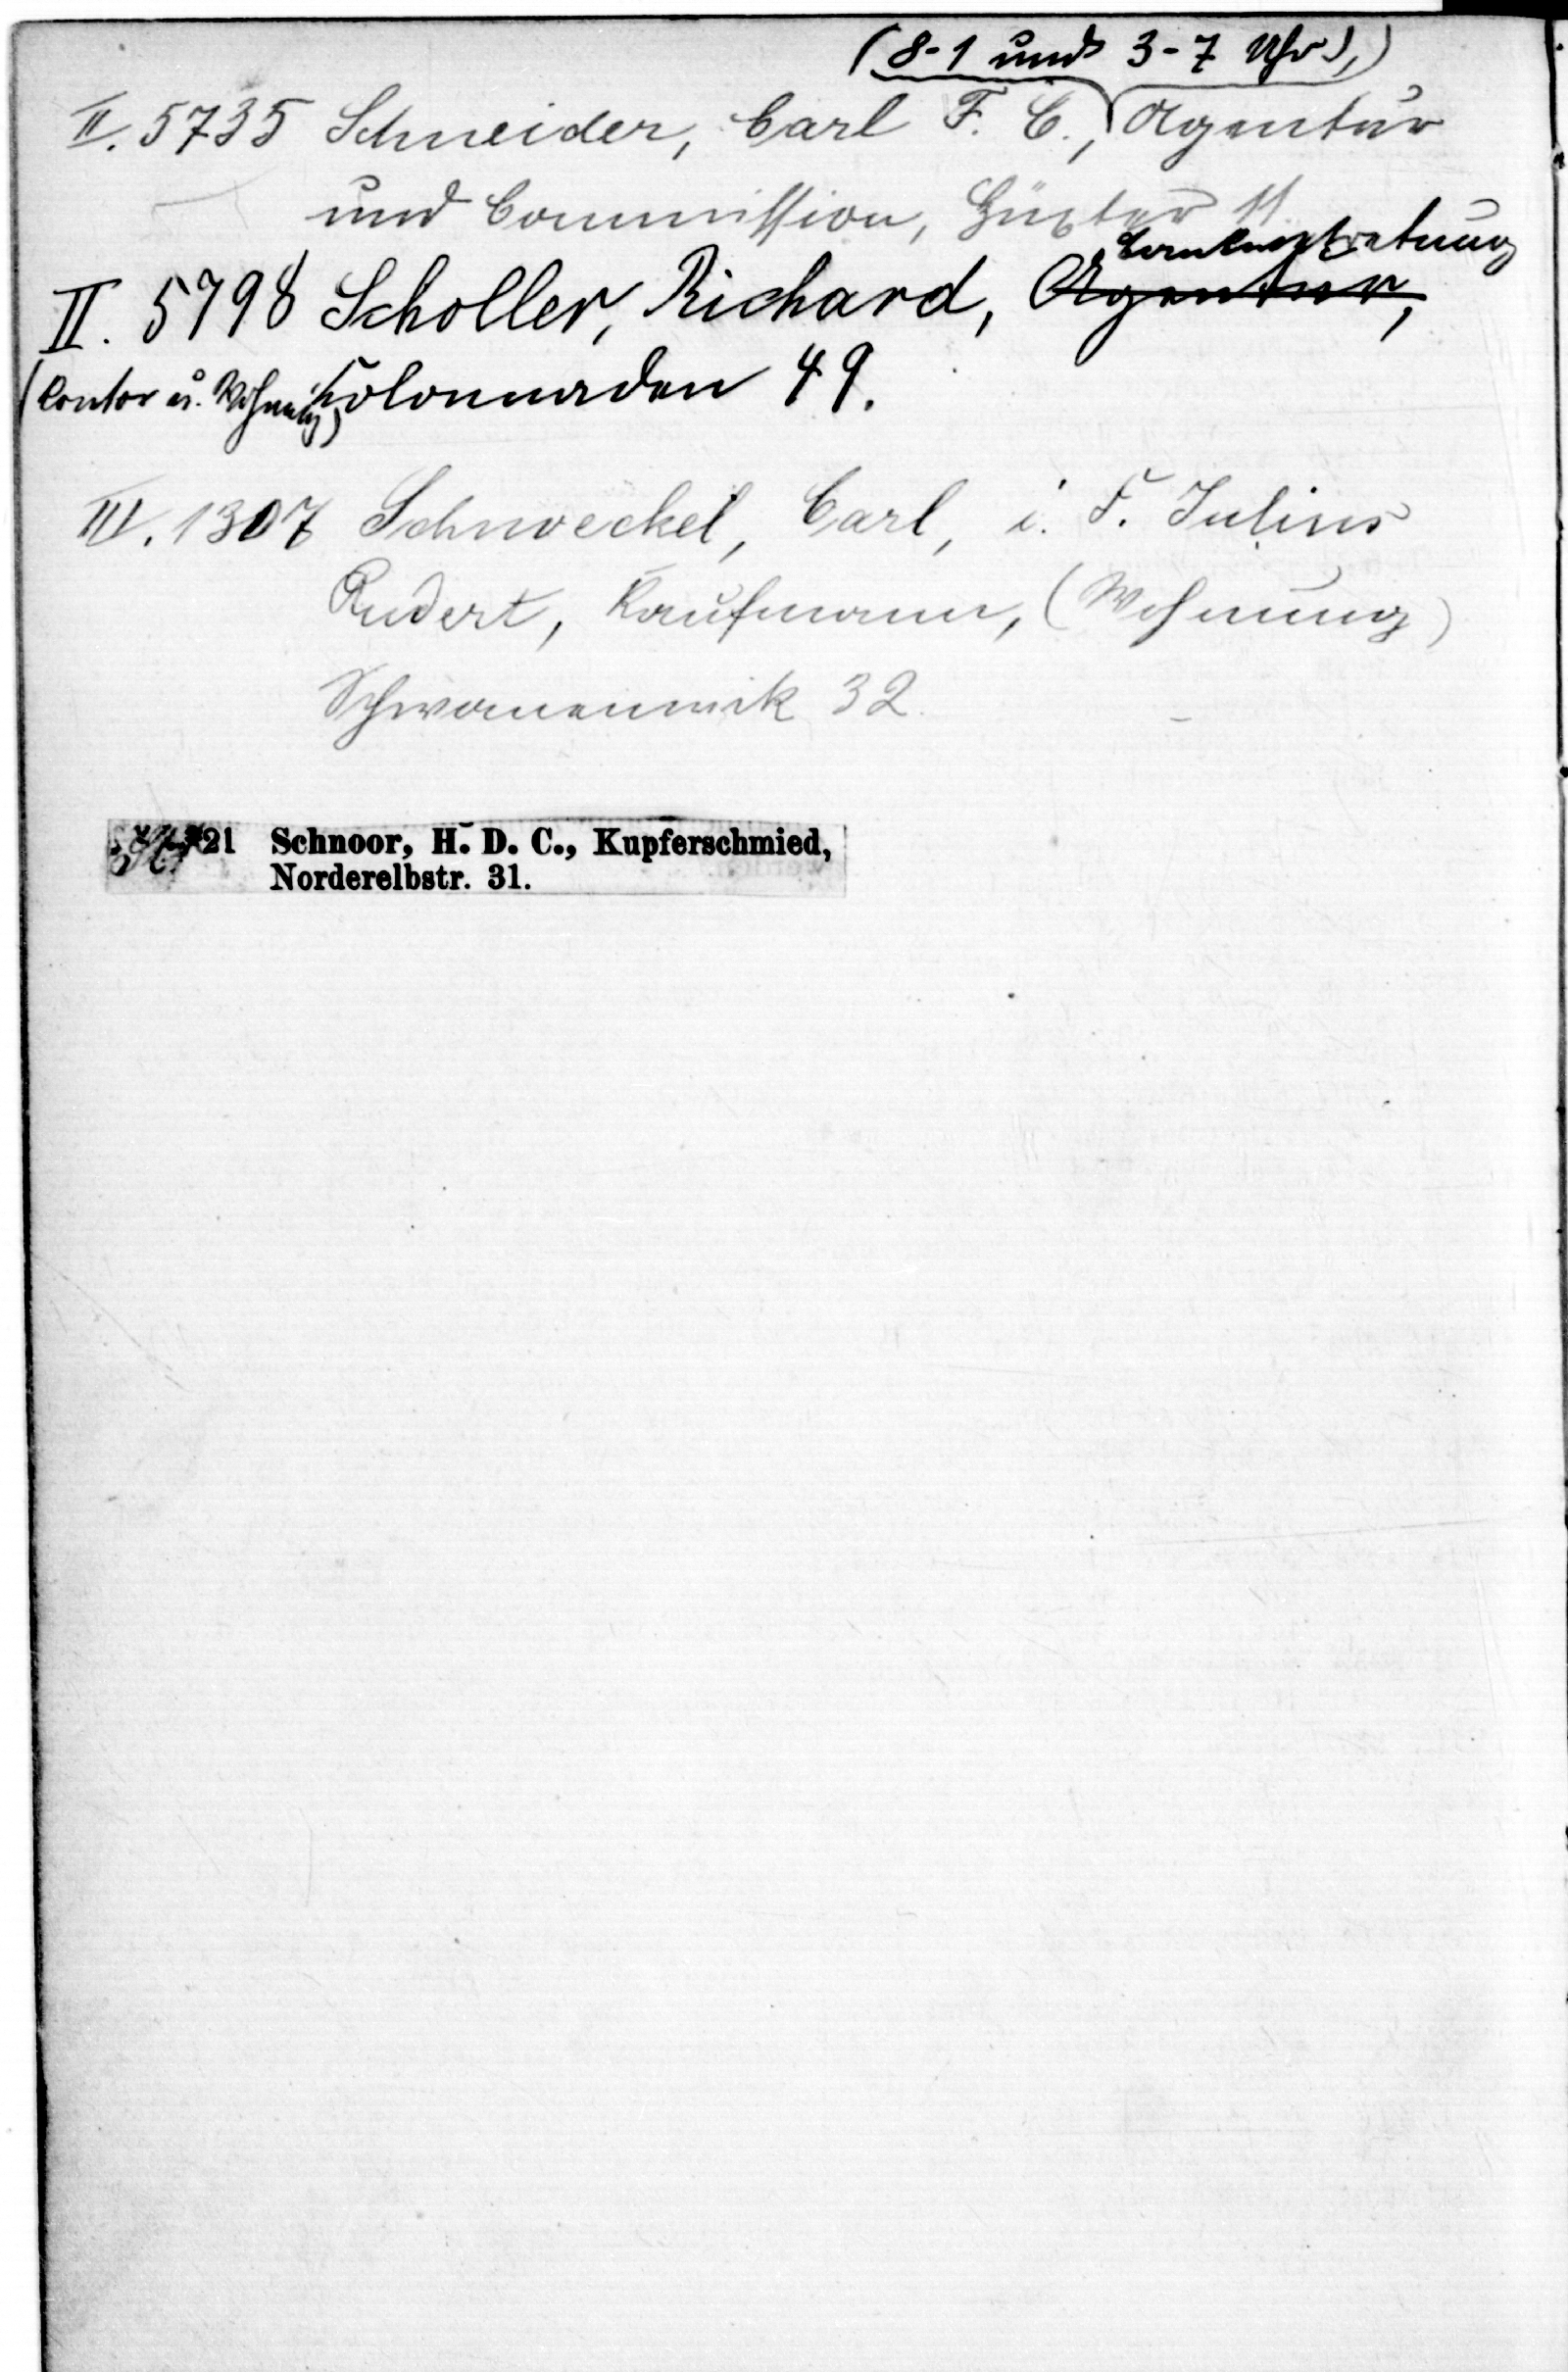 (8-1 und 3-7 Uhr),
II. 5735 Schneider, Carl F. C., Agentur
und Commission, Hüxter 11
II. 5798 Scholler, Richard, Agentur,
(Contor u. Wohnung) Colonnaden 49.
III. 1307 Schnoeckel, Carl, i. F. Julius
Rudert, Kaufmann, (Wohnung)
Schwanenwik 32.
21 Schnoor, H. D. C., Kupferschmied,
Norderelbstr. 31.